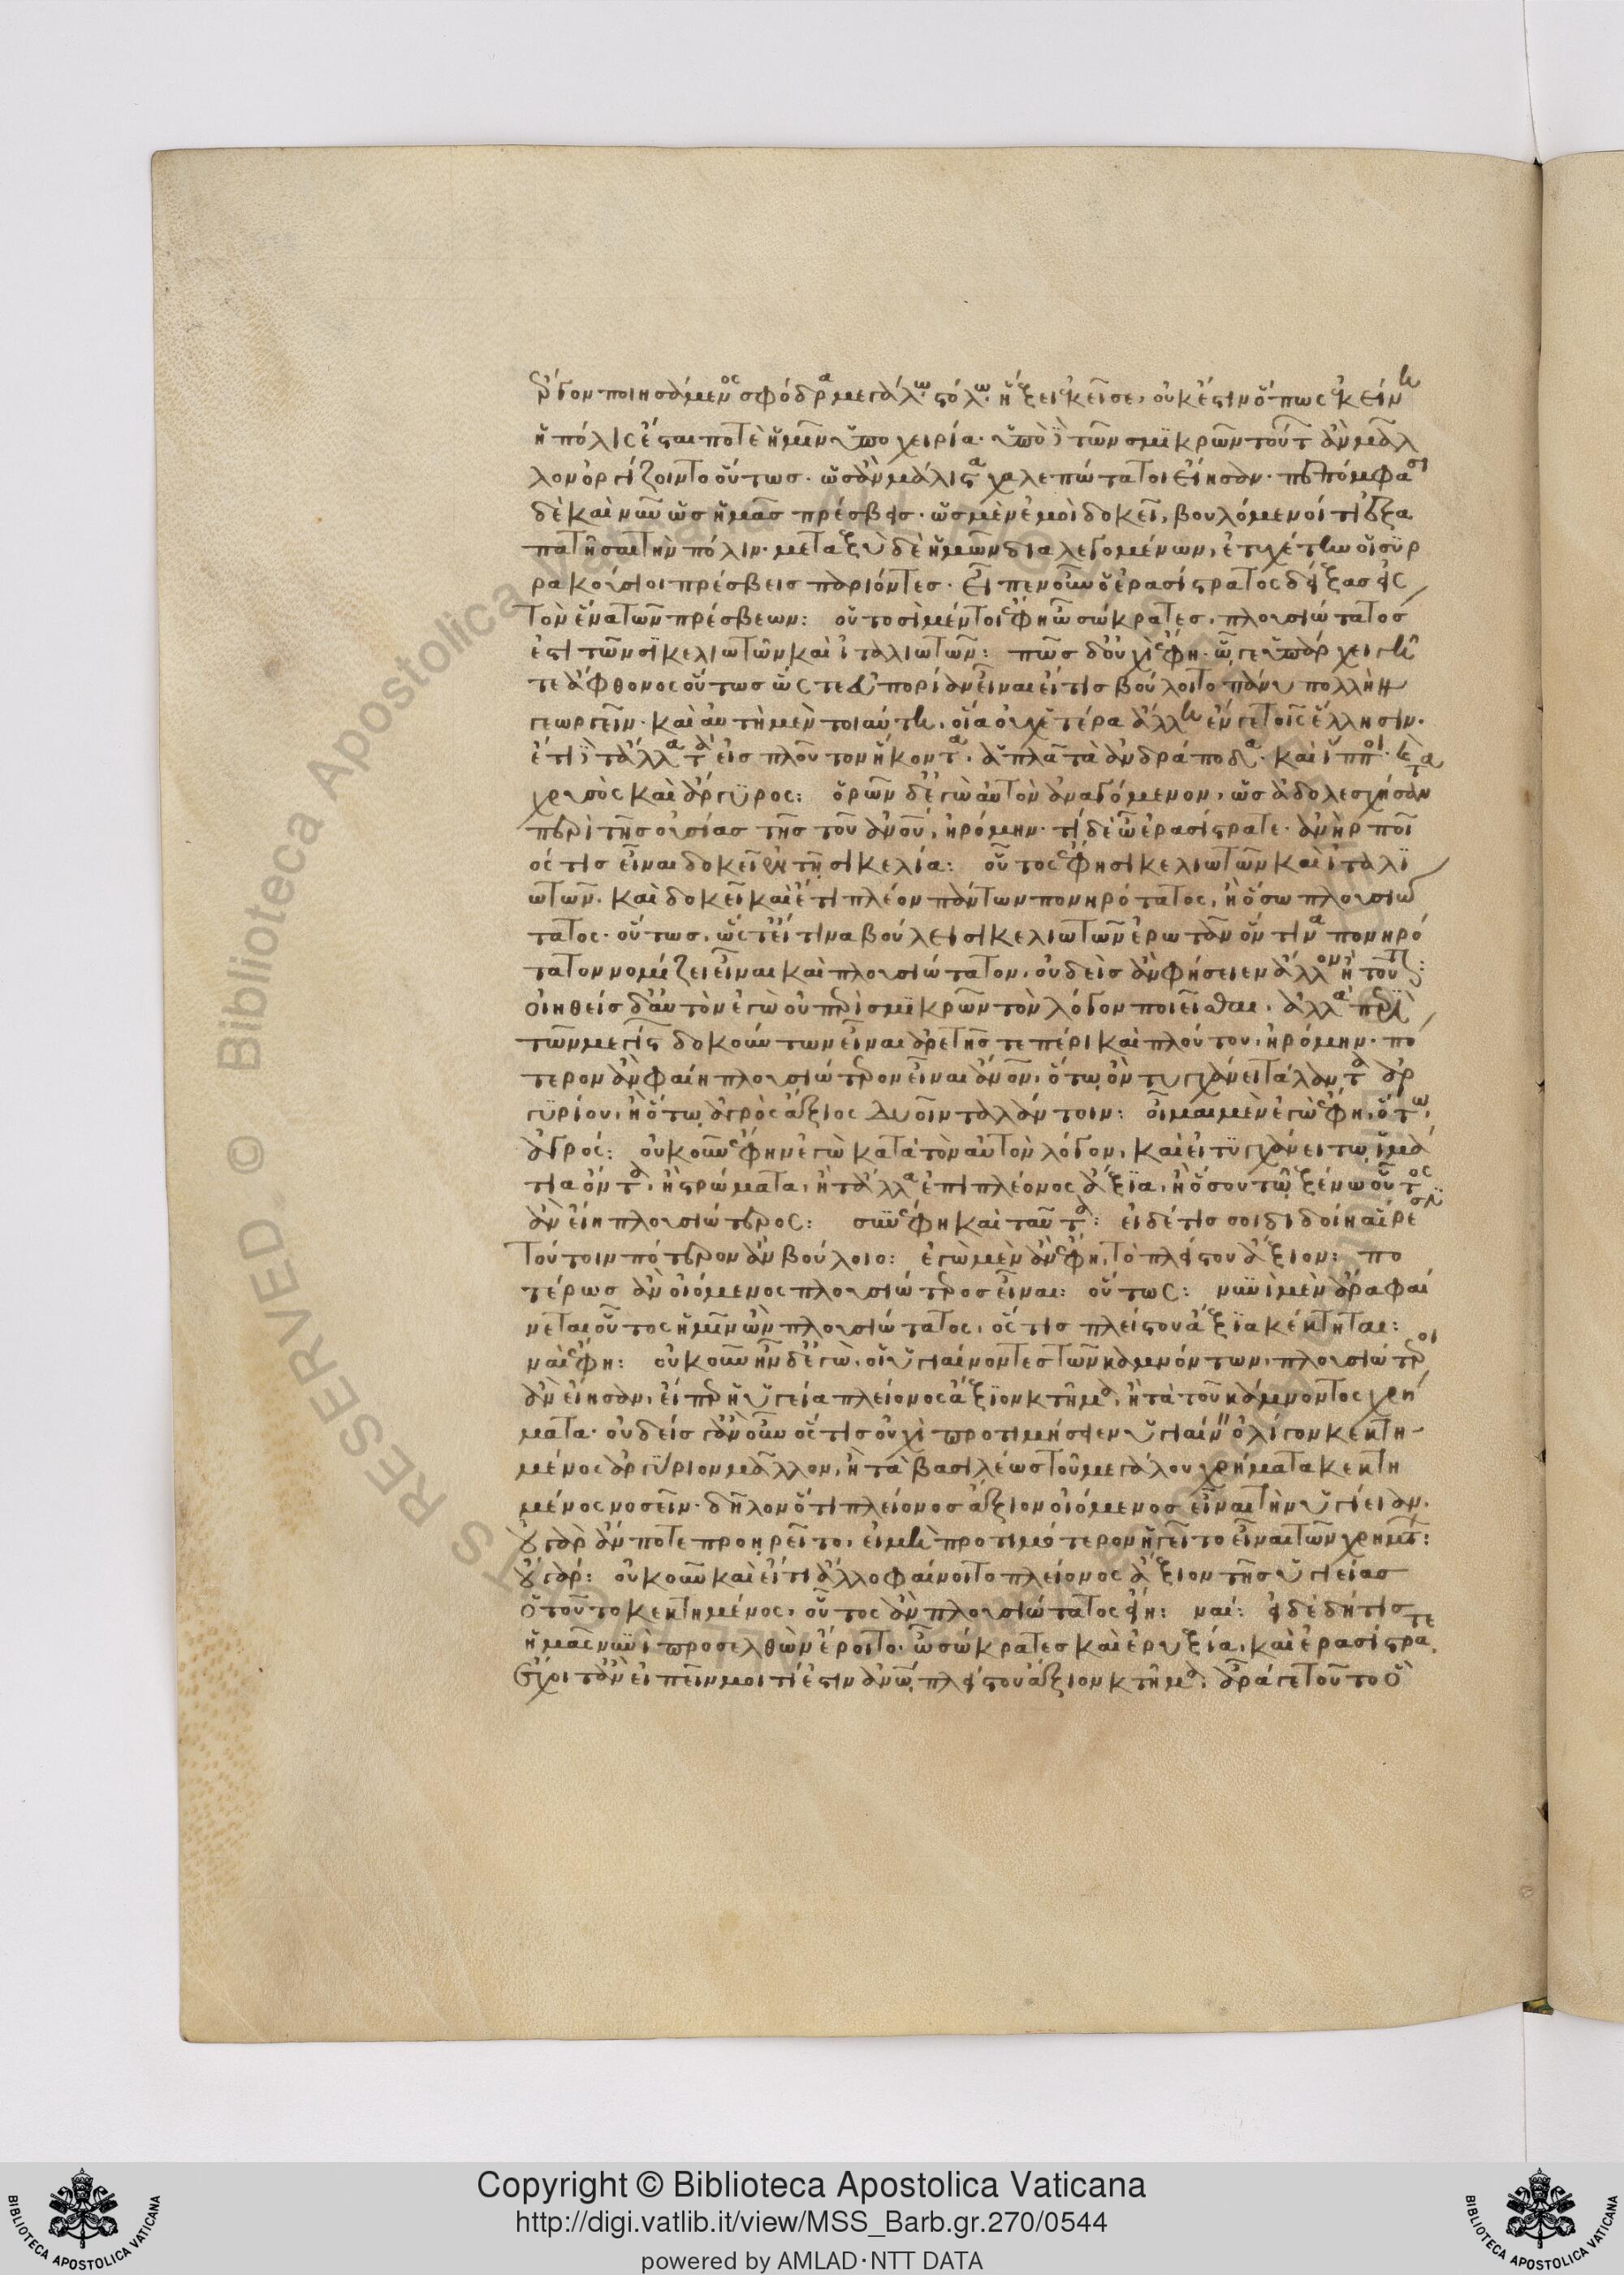 ἔργον ποιησάμενος σφόδρα μεγάλῳ στόλῳ ἥξει ἐκεῖσε, οὐκ ἔστιν ὅπως ἐκείνη
ἡ πόλις ἔσται ποτὲ ἡμῖν ὑποχειρία· ὑπὸ δὲ τῶν σμικρῶν τούτων ἂν μᾶλ
λον ὀργίζοιντο οὕτως. ὡς ἂν μάλιστα χαλεπώτατοι εἴησαν. πεπόμφασι
δὲ καὶ νῦν ὡς ἡμᾶς πρέσβεις. ὡς μὲν ἐμοὶ δοκεῖ, βουλόμενοί τι ἐξα
πατῆσαι τὴν πόλιν. μεταξὺ δὲ ἡμῶν διαλεγομένων, ἐτυχέτην οἱ συρ
ρακούσιοι πρέσβεις παριόντες. εἶπεν οὖν ὁ ἐρασίστρατος δείξας εἰς
τὸν ἕνα τῶν πρέσβεων: οὑτοσὶ μέντοι ἔφη ὦ σώκρατες, πλουσιώτατός
ἐστι τῶν σικελιωτῶν καὶ ἰταλιωτῶν: πῶς δ' οὐχὶ ἔφη. ᾧ γε ὑπάρχει γῆ
τε ἄφθονος οὕτως ὥστε εὐπορίαν εἶναι εἴ τις βούλοιτο πάνυ πολλὴν
γεωργεῖν. καὶ αὐτὴ μέντοι αὕτη, οἵα οὐχ ἑτέρα ἄλλη ἔν γε τοῖς ἕλλησιν.
ἔτι δὲ τἄλλα τὰ εἰς πλοῦτον ἥκοντα. ἄπλατα ἀνδράποδα. καὶ ἵπποι. καὶ
χρυσὸς καὶ ἄργυρος: ὁρῶν δ' ἐγὼ αὐτὸν ἀναγόμενον, ὡς ἀδολεσχήσαν
περὶ τῆς οὐσίας τῆς τοῦ ἀνθρώπου, ἠρόμην. τί δὲ ὦ ἐρασίστρατε. ἀνὴρ ποῖ
ός τις εἶναι δοκεῖ ἐν τῇ σικελίᾳ: οὗτος ἔφη σικελιωτῶν καὶ ἰταλι
ωτῶν. καὶ δοκεῖ καὶ ἔτι πλέον πάντων πονηρότατος, ἢ ὅσῳ πλουσιώ
τατος. οὕτως, ὥστ' εἴ τινα βούλει σικελιωτῶν ἐρωτᾶν ὅντινα πονηρό
τατον νομίζει εἶναι καὶ πλουσιώτατον, οὐδεὶς ἂν φήσειεν ἄλλον ἢ τοῦτον:
οἰηθεὶς δ' αὐτὸν ἐγὼ οὐ περὶ σμικρῶν τὸν λόγον ποιεῖσθαι, ἀλλὰ περὶ
τῶν μεγίστων δοκούντων εἶναι ἀρετῆς τε πέρι καὶ πλούτου, ἠρόμην. πό
τερον ἂν φαίη πλουσιώτερον εἶναι ἄνθρωπον, ὅτῳ ὂν τυγχάνει τάλαντα ἀρ
γυρίου, ἢ ὅτῳ ἀγρὸς ἄξιος δυοῖν ταλάντοιν: οἶμαι μὲν ἐγὼ ἔφη, ὅτῳ,
ἀγρός: οὐκοῦν ἔφην ἐγὼ κατὰ τὸν αὐτὸν λόγον, καὶ εἰ τυγχάνει τῳ ἱμά
τια ὄντα, ἢ στρώματα, ἢ τἄλλα ἐπὶ πλέονος ἄξια, ἢ ὅσου τῷ ξένῳ οὗτος
ἂν εἴη πλουσιώτερος: συνέφη καὶ ταῦτα: εἰ δέ τίς σοι διδοίη αἵρεσιν
τούτοιν πότερον ἂν βούλοιο: ἐγὼ μὲν ἂν ἔφη, τὸ πλείστου ἄξιον: πο
τέρως ἂν οἰόμενος πλουσιώτερος εἶναι: οὕτως: νυνὶ μὲν ἄρα φαί
νεται οὗτος ἡμῖν ὢν πλουσιώτατος, ὅς τις πλείστου ἄξια κέκτηται:
ναὶ ἔφη: οὐκοῦν ἦν δ' ἐγώ, οἱ ὑγιαίνοντες τῶν καμνόντων, πλουσιώτεροι
ἂν εἴησαν, εἴπερ ἡ ὑγεία πλείονος ἄξιον κτῆμα, ἢ τὰ τοῦ κάμνοντος χρή
ματα. οὐδεὶς γ' ἂν οὖν ὅς τις οὐχὶ προτιμήσειεν ὑγιαίνειν ὀλίγον κεκτη
μένος ἀργύριον μᾶλλον, ἢ τὰ βασιλέως τοῦ μεγάλου χρήματα κεκτη
μένος νοσεῖν. δῆλον ὅτι πλείονος ἄξιον οἰόμενος εἶναι τὴν ὑγίειαν.
οὐ γὰρ ἄν ποτε προῃρεῖτο, εἰ μὴ προτιμότερον ἡγεῖτο εἶναι τῶν χρημάτων:
οὐ γάρ: οὐκοῦν καὶ εἴ τι ἄλλο φαίνοιτο πλείονος ἄξιον τῆς ὑγιείας
ὁ τοῦτο κεκτημένος, οὗτος ἂν πλουσιώτατος εἴη: ναί: εἰ δὲ δή τις
ἡμᾶς νυνὶ προσελθὼν ἔροιτο. ὦ σώκρατες καὶ ἐρυξία, καὶ ἐρασίστρατε,
ἔχοιτ' ἂν εἰπεῖν μοι τί ἐστιν ἀνθρώπῳ πλείστου ἄξιον κτῆμα, ἆρά γε τοῦτο ὃ
Copyright © Biblioteca Apostolica Vaticana
http://digi.vatlib.it/view/MSS_Barb.gr.270/0544
powered by AMLAD·NTT DATA